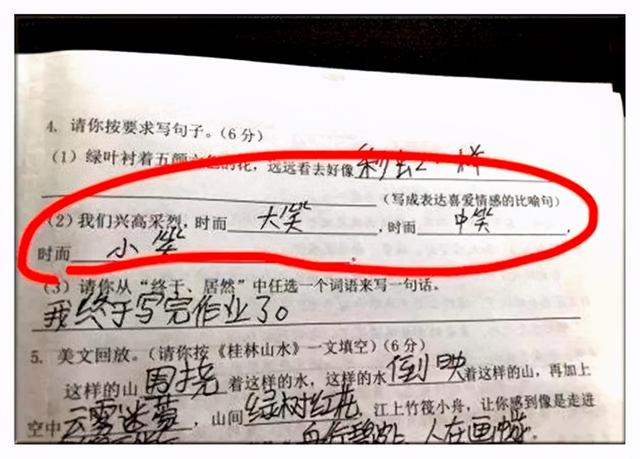 4. 请你按要求写句子。(6分)
(1) 绿叶衬着五颜六色的花，远远看去好像
(写成表达喜爱情感的比喻句)
(2) 我们兴高采烈，时而 大笑 ，时而 中笑 ，
时而 小笑
(3) 请你从“终于、居然”中任选一个词语来写一句话。
我终于写完作业了。
5. 美文回放。(请你按《桂林山水》一文填空)(6分)
这样的山 围绕 着这样的水，这样的水 倒映 着这样的山，再加上
空中 云雾迷蒙 ，山间 绿树红花 ，江上竹筏小舟，让你感到像是走进
人在画中游。